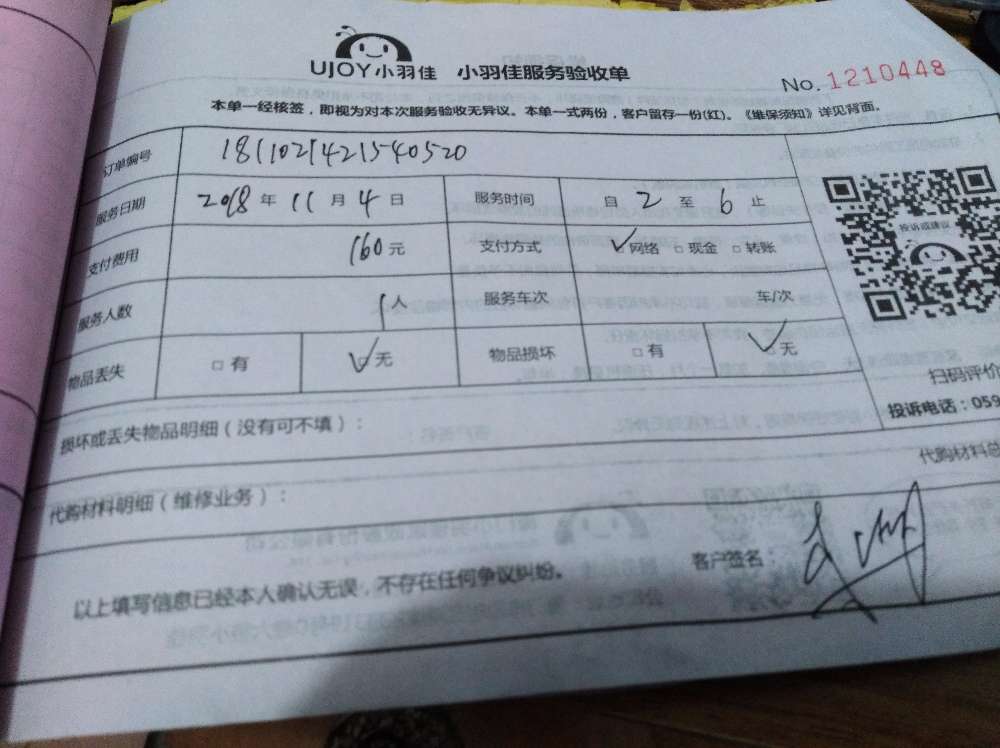 UJOY小羽佳 小羽佳服务验收单
No. 1210448
本单一经核签，即视为对本次服务验收无异议。本单一式两份，客户留存一份(红)。《维保须知》详见背面。
订单编号 181102142154052​0
服务日期 2018年11月4日 服务时间 自2至6止
支付费用 160元 支付方式 ✓网络 □现金 □转账
服务人数 1人 服务车次 车/次
物品丢失 □有 ✓无 物品损坏 □有 ✓无
投诉或建议
扫码评价
投诉电话：059
损坏或丢失物品明细（没有可不填）：
代购材料明细（维修业务）：
代购材料总
以上填写信息已经本人确认无误，不存在任何争议纠纷。
客户签名：